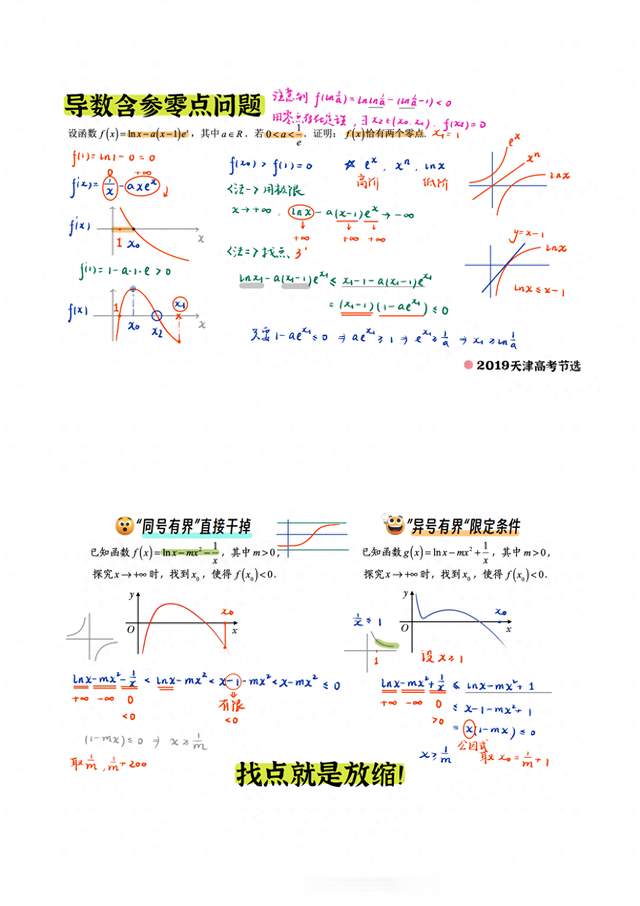 导数含参零点问题
注意到 f(ln 1/a) = ln ln 1/a − (ln 1/a − 1) < 0
用零点存在定理, ∃ x₂∈(x₀, x₁), f(x₂) = 0
设函数 f(x) = ln x − a(x−1)eˣ，其中 a∈R．若 0 < a < 1/e．证明：f(x)恰有两个零点． x₁ = 1
f(1) = ln1 − 0 = 0
0 +∞
f'(x) = 1/x − axeˣ ↓
f'(x)
1 x₀ x
f'(1) = 1 − a·1·e > 0
f(x)
1 x₀ x₂ x₁ x
f(x₀) > f(1) = 0
☆ eˣ, xⁿ, lnx
高阶 低阶
<法一> 用极限
x → +∞ . lnx − a(x−1)eˣ → −∞
+∞ +∞ +∞
<法二> 找点
lnx₁ − a(x₁−1)eˣ¹ ≤ x₁−1−a(x₁−1)eˣ¹
= (x₁−1)(1−aeˣ¹) ≤ 0
只要 1−aeˣ¹ ≤ 0 ⇒ aeˣ¹ ≥ 1 ⇒ eˣ¹ ≥ 1/a ⇒ x₁ ≥ ln 1/a
eˣ
xⁿ
lnx
y=x−1
lnx
lnx ≤ x−1
2019天津高考节选
“同号有界”直接干掉
已知函数 f(x) = ln x − mx² − 1/x，其中 m > 0，
探究 x → +∞ 时，找到 x₀，使得 f(x₀) < 0．
y
x₀
O x
lnx − mx² − 1/x < lnx − mx² < x−1−mx² < x−mx² ≤ 0
+∞ −∞ 0
<0
有限
<0
(1−mx) ≤ 0 ⇒ x ≥ 1/m
取 1/m , 1/m + 200
“异号有界“限定条件
已知函数 g(x) = ln x − mx² + 1/x，其中 m > 0，
探究 x → +∞ 时，找到 x₀，使得 f(x₀) < 0．
y
1/x ≤ 1
x₀
O x
1
设 x ≥ 1
lnx − mx² + 1/x ≤ lnx − mx² + 1
+∞ −∞ 0
>0
≤ x−1−mx²+1
= x(1−mx) ≤ 0
公因式
x ≥ 1/m
取 x₀ = 1/m + 1
找点就是放缩!